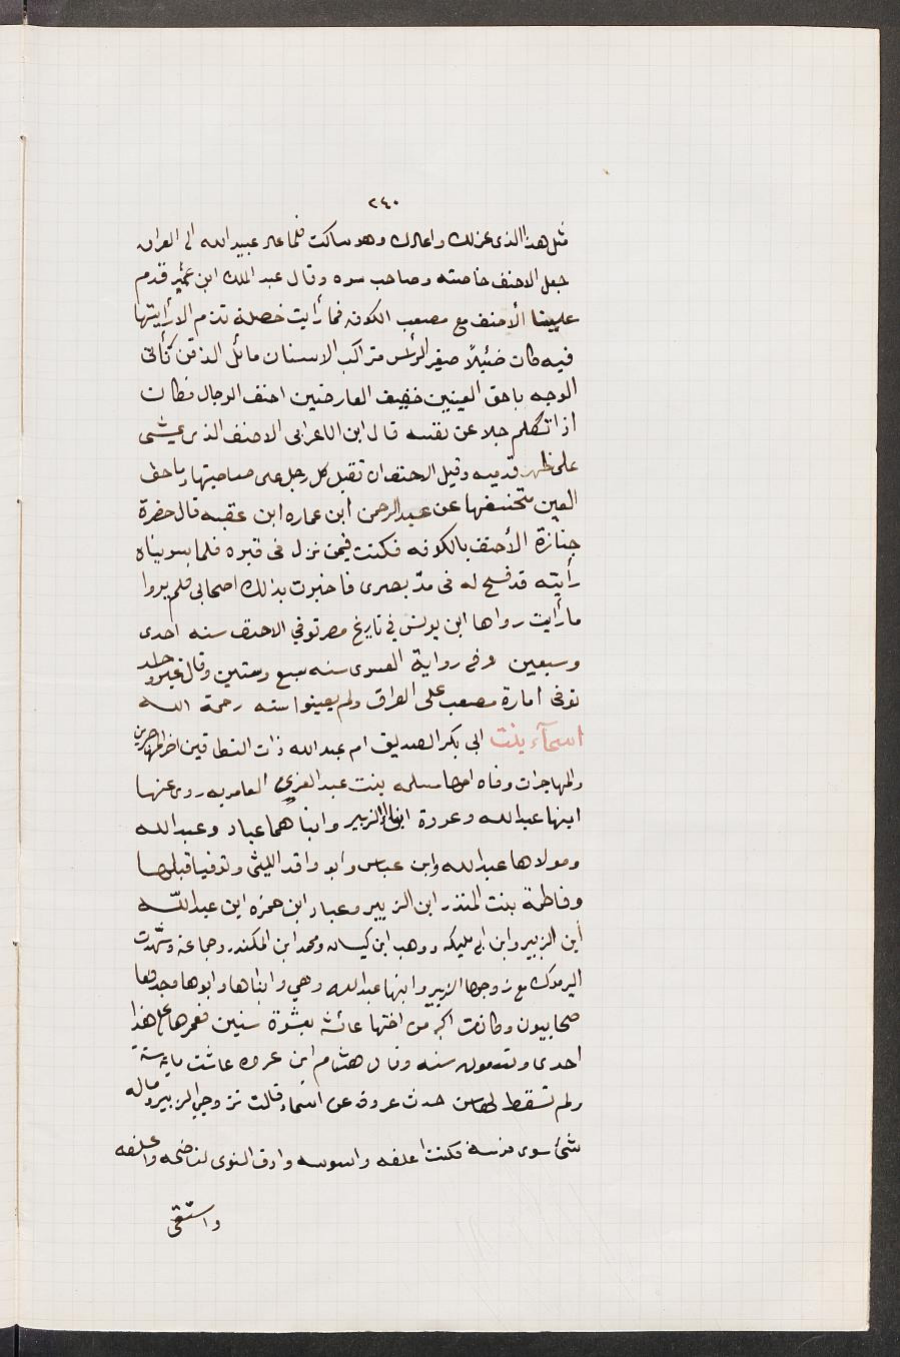 ٢٤٠
مثل هذا الذى عزلك واعادك وهو ساكت فلما عاد عبيد الله الى العراق
جعل الاحنف خاصته وصاحب سره وقال عبد الملك ابن عمير قدم
علينا الأحنف مع مصعب الكوفه فما رأيت خصلة تذم الا رأيتها
فيه كان ضئيلاً صغير الرأس متراكب الاسنان مائل الذقن ناتى
الوجه باحق العينين خفيف العارضين احنف الرجال فكان
اذا تكلم جلا عن نفسه قال ابن الاعرابى الاحنف الذى يمشى
على ظهر قدميه وقيل الاحنف ان تقبل كل رجل على صاحبتها
العين عن عبد الرحمن ابن عماره ابن عقبه قال حضرة
جنازة الأحنف بالكوفه فكنت فيمن نزل فى قبره فلما سويناه
رأيته قد فسح له فى مدّ بصرى فاخبرت بذلك اصحابى فلم يروا
ما رأيت رواها ابن يونس في تاريخ مصر توفي الاحنف سنه احدى
وسبعين وفى رواية الفسوى سنه سبع وستين وقال غير واحد
توفى امارة مصعب على العراق ولم يعينوا سنه رحمة الله
اسمآء بنت ابى بكر الصديق ام عبد الله ذات النطاقين اخر المهاجرين
والمهاجرات وفاه امها سلمه بنت عبد العزي العامريه روى عنها
ابنها عبد الله وعروة ابنا الزبير وابناهما عباد وعبد الله
ومولاها عبد الله وابن عباس وابو واقد الليثى وتوفيا قبلها
وفاطمة بنت المنذر ابن الزبير وعباد ابن حمزه ابن عبد اللّه
أبن الزبير وابن ابى مليكه ووهب ابن كيسان ومحمد ابن المكندر وجماعة وشهدت
اليرموك مع زوجها الزبير وابنها عبد الله وهي وابناها وابوها وجدها
صحابيون وكانت اكبر من اختها عائشه بعشرة سنين فعمرها على هذا
احدى وتسعون سنه وقال هشام ابن عروه عاشت مائة سنة
ولم تسقط لها سن حدث عروة عن اسماء قالت تزوجني الزبير وماله
شئ سوى فرسه فكنت اعلفه واسوسه وادق النوى لناضحه واعلفه
واستقى